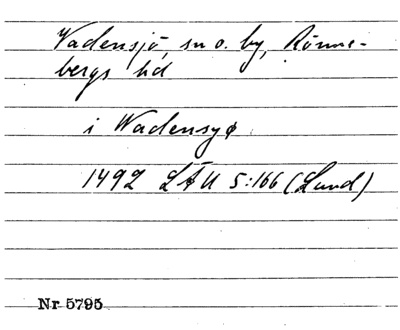 Vadensjö, sn o. by, Rönne-
bergs hd
i Wadensyø
1492 LÄU 5:166 (Lund)
Nr 5795